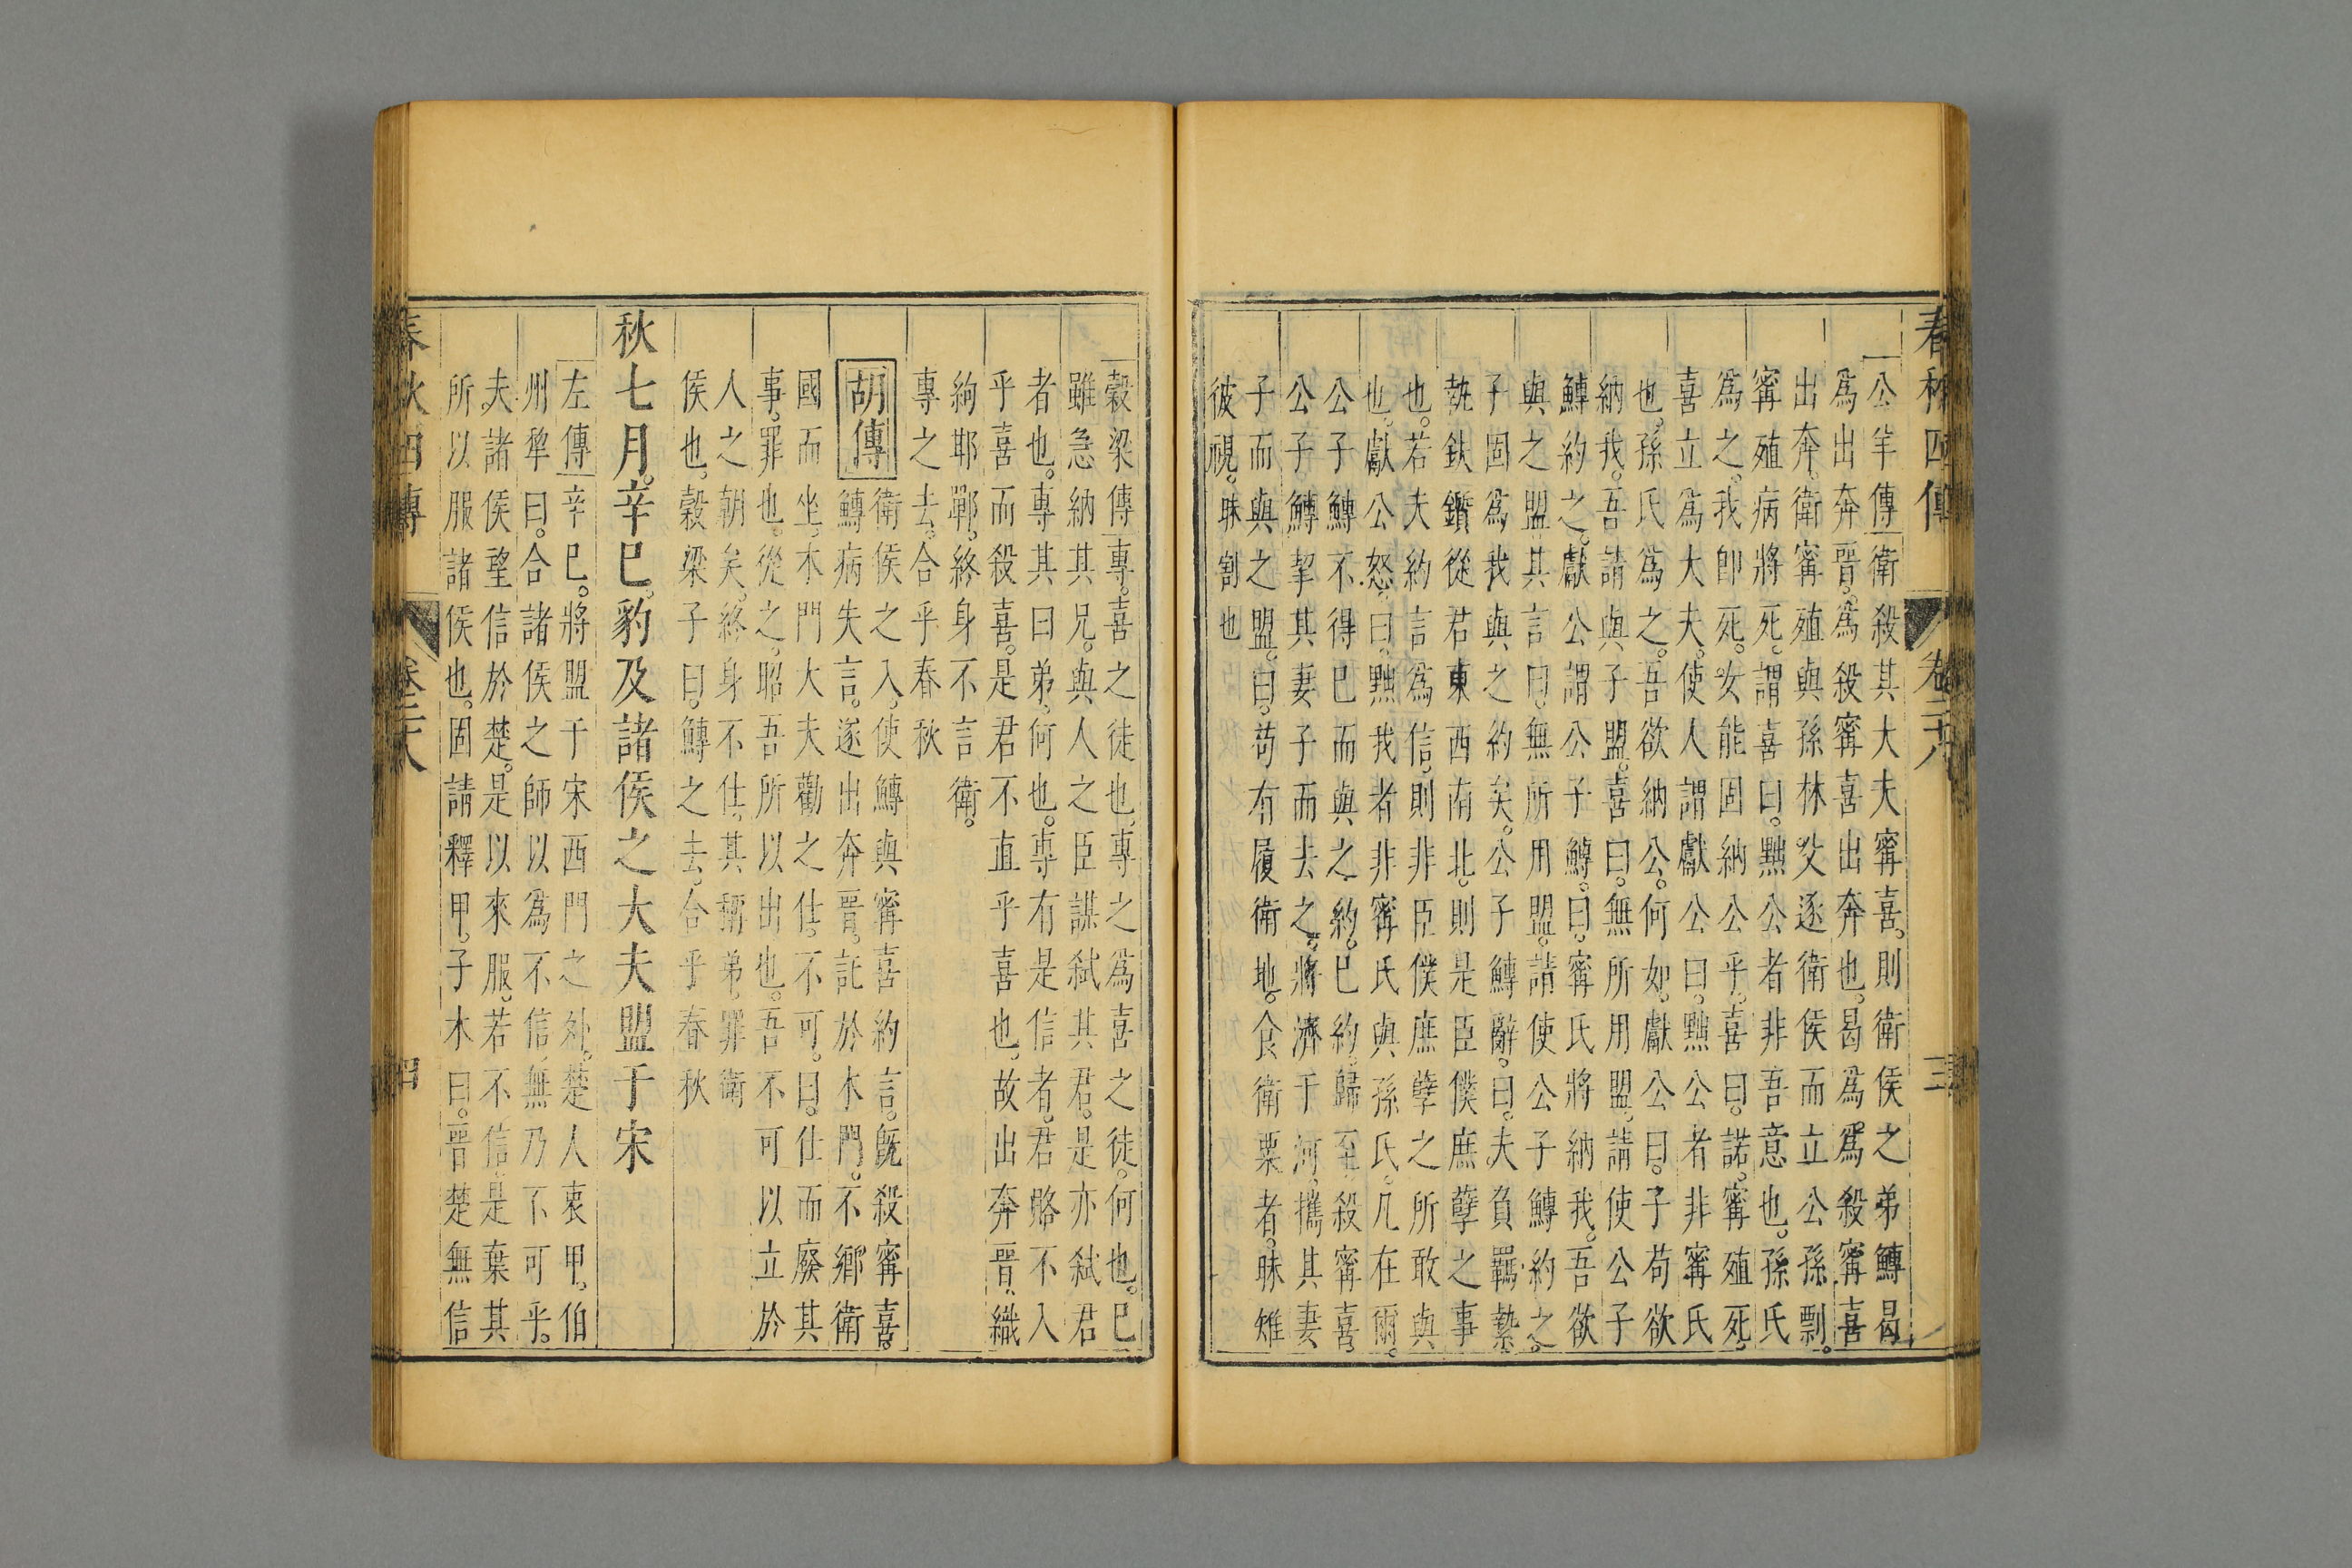 春秋四傳 卷二十八 三
公羊傳衛殺其大夫寗喜。則衛侯之弟鱄曷
爲出奔晋。爲殺寗喜出奔也。曷爲爲殺寗喜
出奔。衛寗殖與孫林父逐衛侯而立公孫剽。
寗殖病將死。謂喜曰。黜公者非吾意也。孫氏
爲之。我卽死。女能固納公乎。喜曰。諾。寗殖死。
喜立爲大夫。使人謂獻公曰。黜公者非寗氏
也。孫氏爲之。吾欲納公。何如。獻公曰。子苟欲
納我。吾請與子盟。喜曰。無所用盟。請使公子
鱄約之。獻公謂公子鱄。曰。寗氏將納我。吾欲
與之盟。其言曰。無所用盟。請使公子鱄約之。
子固爲我與之約矣。公子鱄辭。曰。夫負羈縶。
執鈇鑕。從君東西南北。則是臣僕庶孽之事
也。若夫約言爲信。則非臣僕庶孽之所敢與
也。獻公怒。曰。黜我者非寗氏與孫氏。凡在爾。
公子鱄不得已而與之約。已約。歸至殺寗喜。
公子鱄挈其妻子而去之。將濟于河。攜其妻
子而與之盟。曰。苟有履衛地。食衛粟者。昧雉
彼視。昧割也
穀梁傳專。喜之徒也。專之爲喜之徒。何也。已
雖急納其兄。與人之臣謀弑其君。是亦弑君
者也。專其曰弟。何也。專有是信者。君賂不入
乎喜而殺喜。是君不直乎喜也。故出奔晋。織
絢邯鄲。終身不言衛。
專之去。合乎春秋
胡傳 衛侯之入。使鱄與寗喜約言。旣殺寗喜。
鱄病失言。遂出奔晋。託於木門。不鄉衛
國而坐。木門大夫勸之仕。不可。曰。仕而廢其
事。罪也。從之。昭吾所以出也。吾不可以立於
人之朝矣。終身不仕。其稱弟。罪衛
侯也。穀梁子曰。鱄之去。合乎春秋
秋七月。辛巳。豹及諸侯之大夫盟于宋
左傳辛巳。將盟于宋西門之外。楚人衷甲。伯
州犂曰。合諸侯之師以爲不信。無乃不可乎。
夫諸侯望信於楚。是以來服。若不信。是棄其
所以服諸侯也。固請釋甲。子木曰。晋楚無信
春秋四傳 卷二十八 四